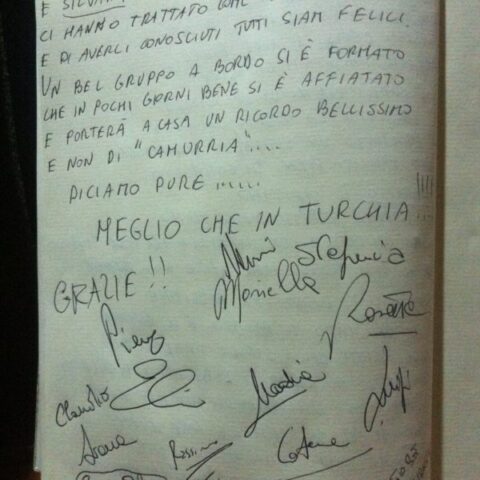 E SILVA
CI HANNO TRATTATO COME
E DI AVERLI CONOSCIUTI TUTTI SIAM FELICI.
UN BEL GRUPPO A BORDO SI È FORMATO
CHE IN POCHI GIORNI BENE SI È AFFIATATO
E PORTERÀ A CASA UN RICORDO BELLISSIMO
E NON DI "CAMURRIA"....
DICIAMO PURE ......
MEGLIO CHE IN TURCHIA !!!!
GRAZIE!!
Stefania
Mariella
Rosaria
Piero
Claudio
Nadia
Luigi
Catena